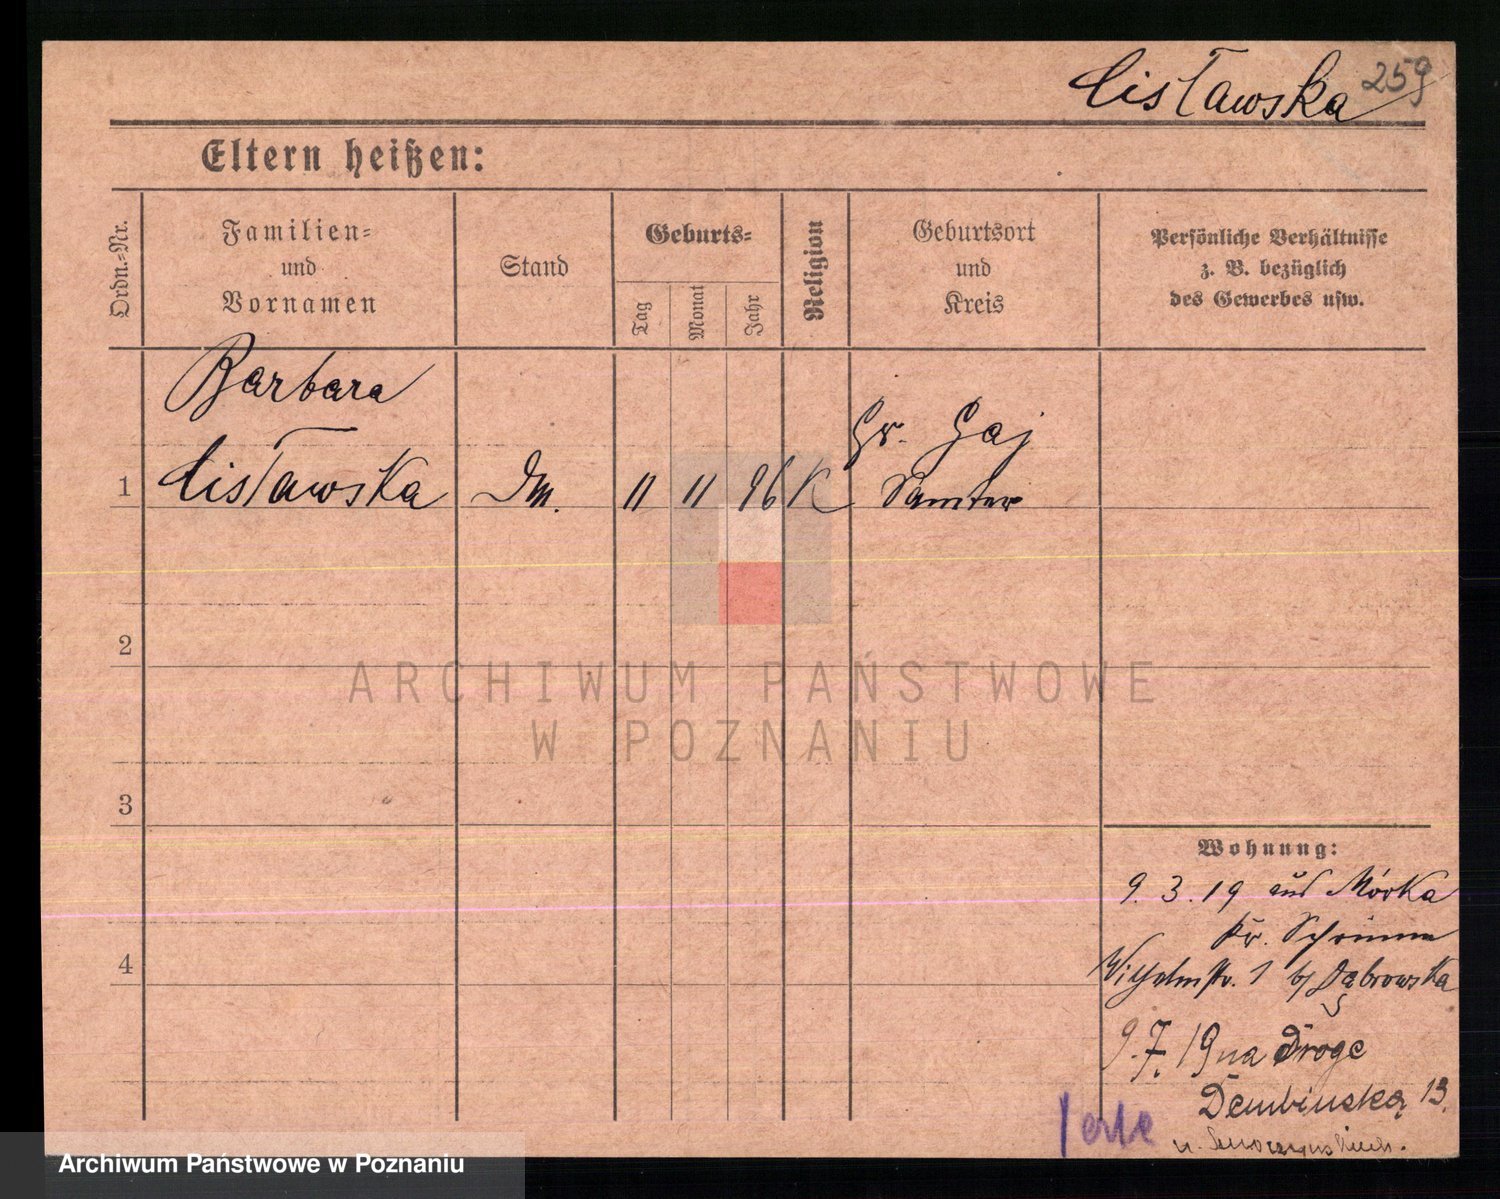 Cisławska 259
Eltern heißen:
Ordn.-Nr.
Familien-
und
Vornamen
Stand
Geburts-
Tag
Monat
Jahr
Religion
Geburtsort
und
Kreis
Persönliche Verhältnisse
z. B. bezüglich
des Gewerbes usw.
Barbara
1 Cisławska Dm. 11 11 96 K Gr. Gaj
Samter
2
3
4
Wohnung:
9. 3. 19 aus Mórka
Kr. Schrimm
Wilhelmstr. 1 b/ Dąbrowska
9. 7. 19 na Droge
Dembinską 13.
u.
ARCHIWUM PAŃSTWOWE
W POZNANIU
Archiwum Państwowe w Poznaniu